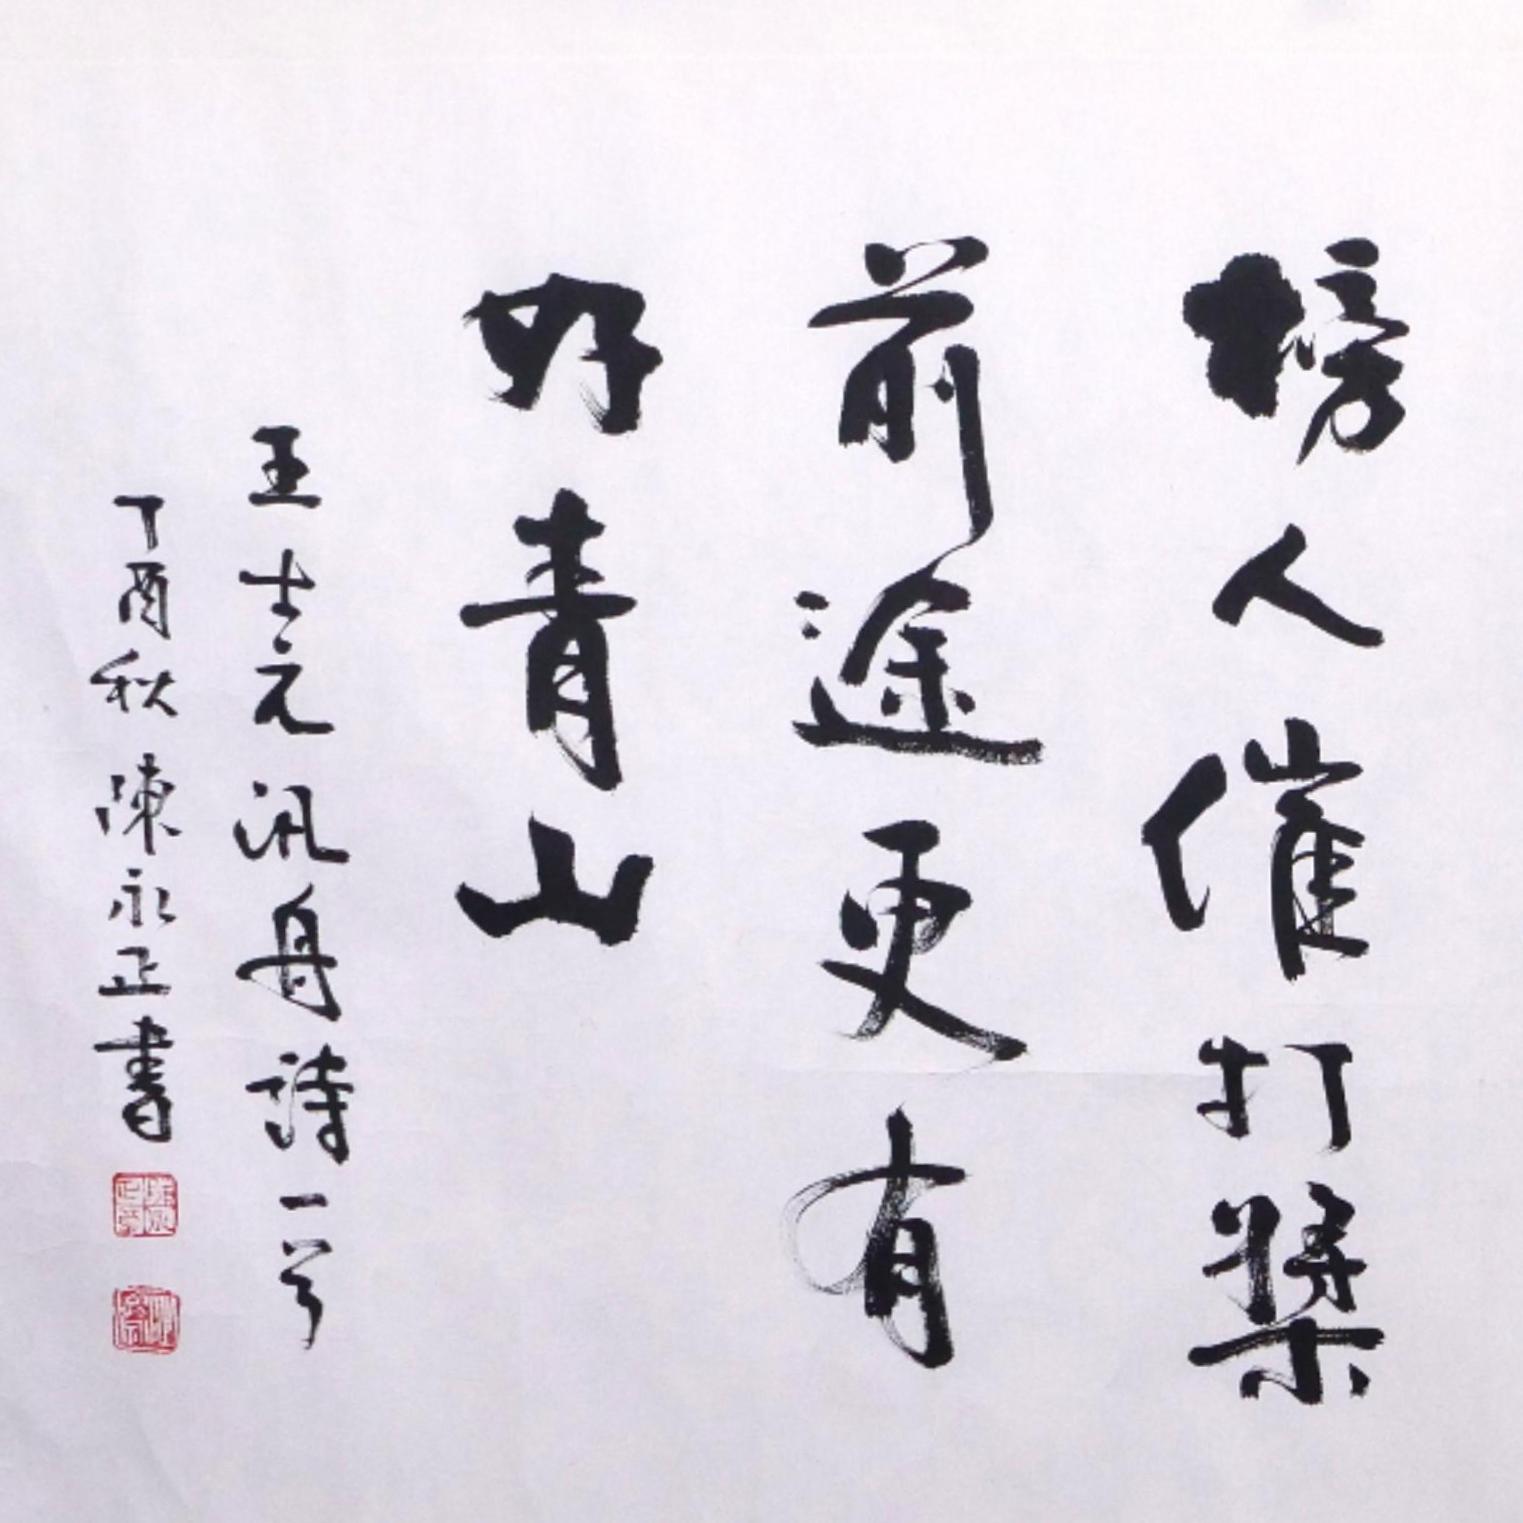 榜人催打槳
前途更有
好青山
王士元汎舟詩一首
丁酉秋陳永正書